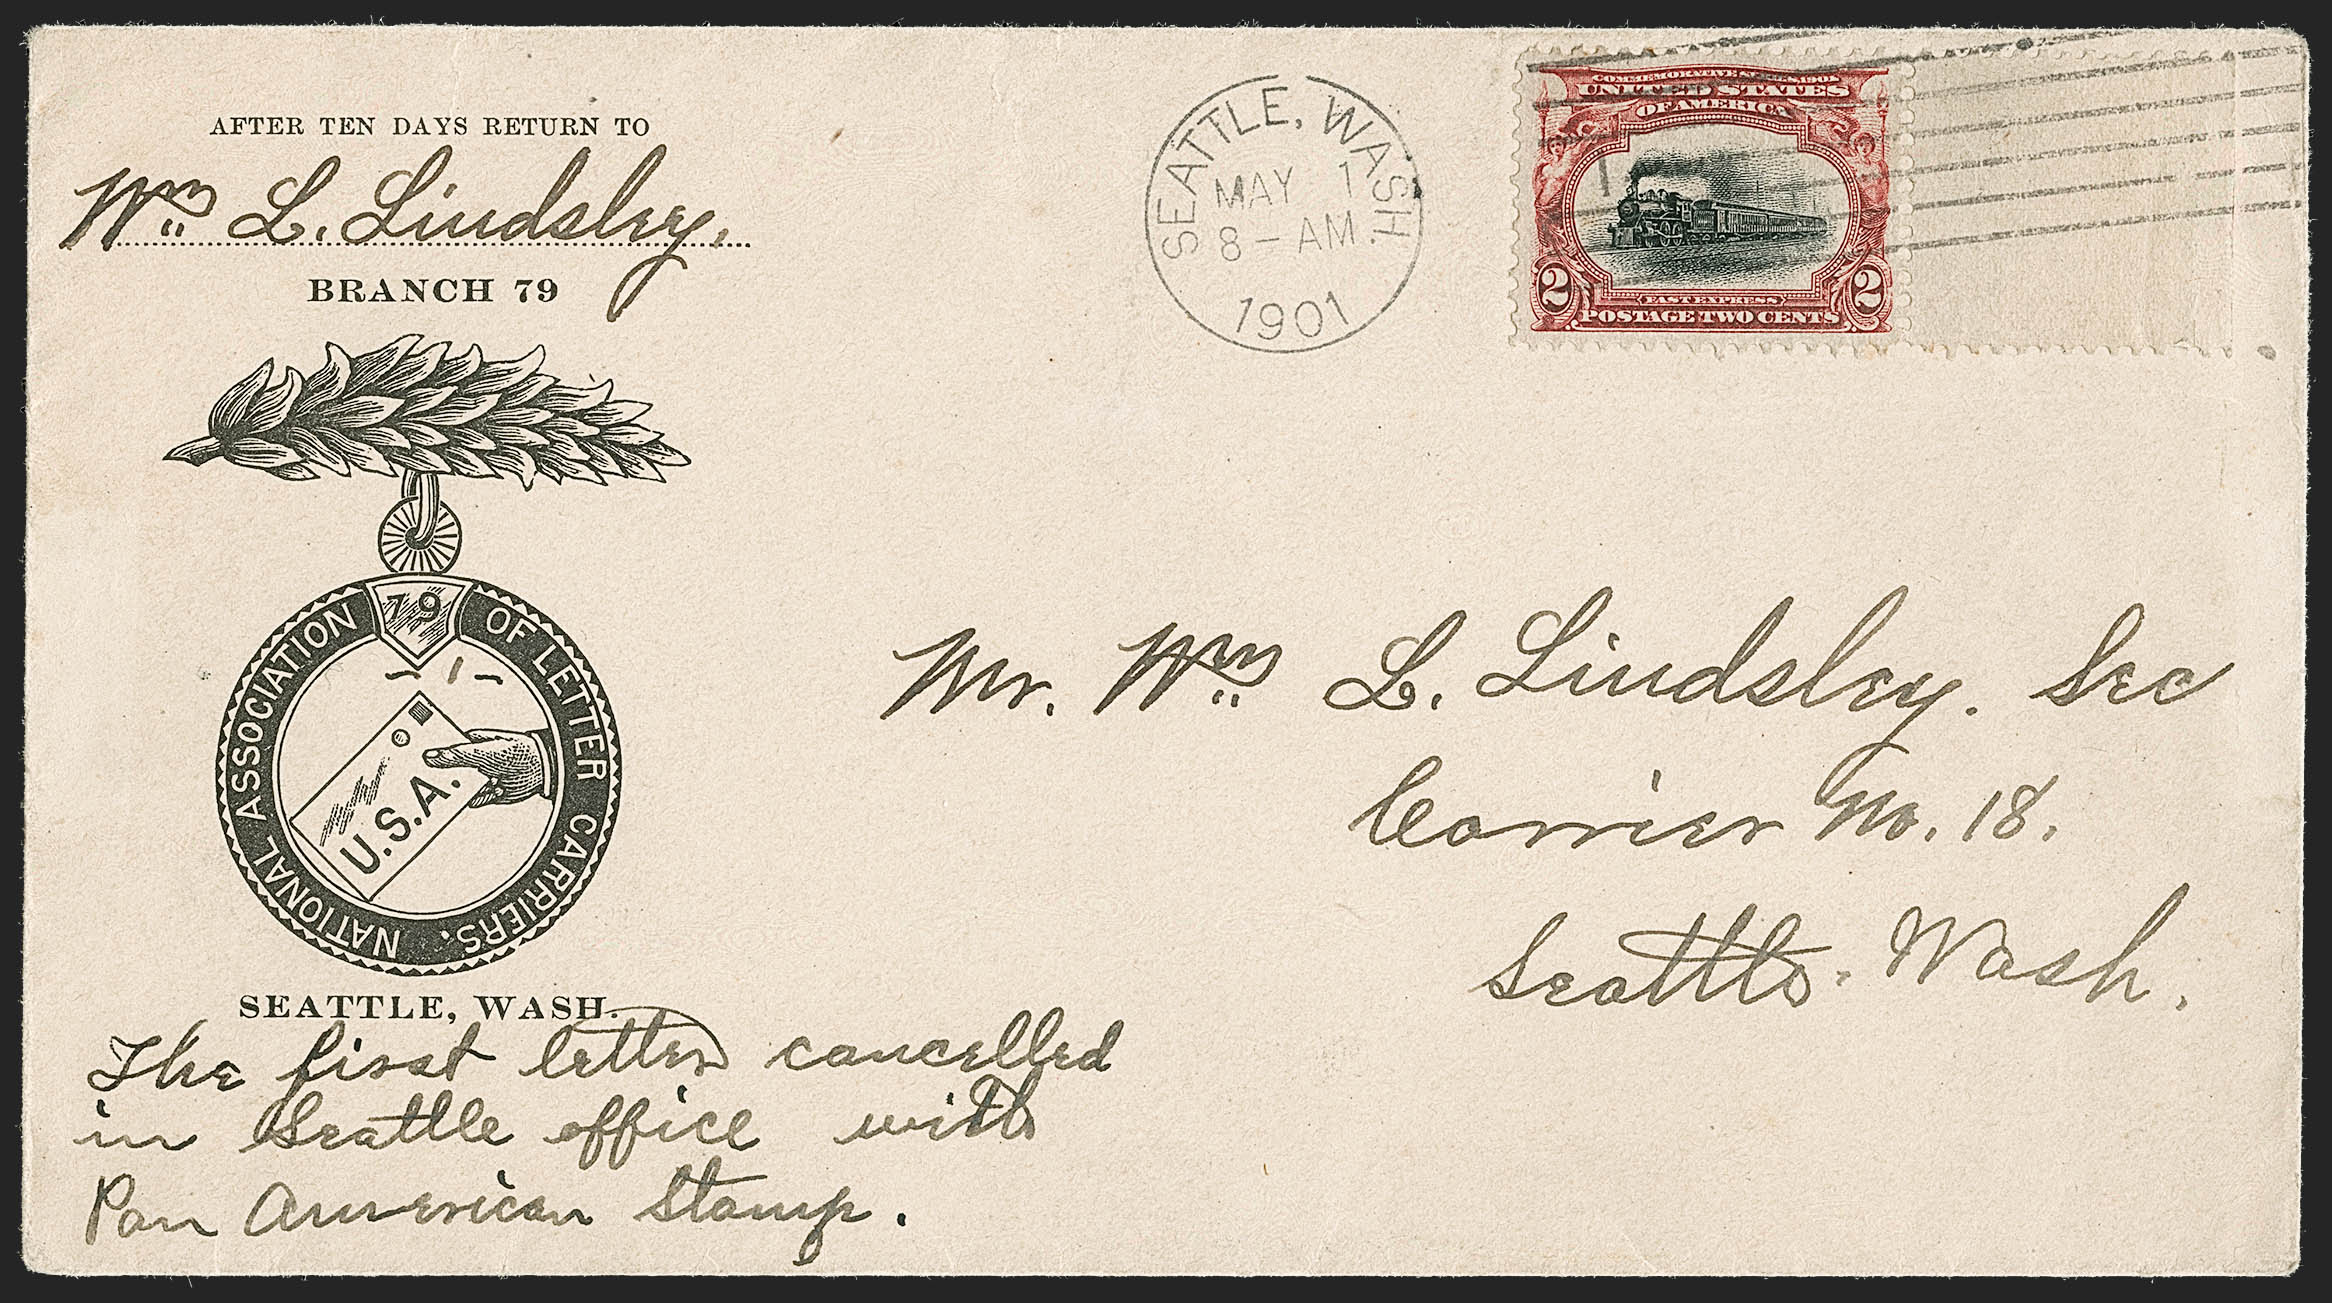 AFTER TEN DAYS RETURN TO
Wm L. Lindsley,
BRANCH 79
79
NATIONAL ASSOCIATION OF LETTER CARRIERS.
U.S.A.
SEATTLE, WASH.
The first letter cancelled
in Seattle office with
Pan American Stamp.
SEATTLE, WASH.
MAY 1
8 - AM
1901
COMMEMORATIVE SERIES, 1901
UNITED STATES
OF AMERICA
FAST EXPRESS
2 2
POSTAGE TWO CENTS
Mr. Wm L. Lindsley. Sec
Carrier No. 18.
Seattle. Wash.